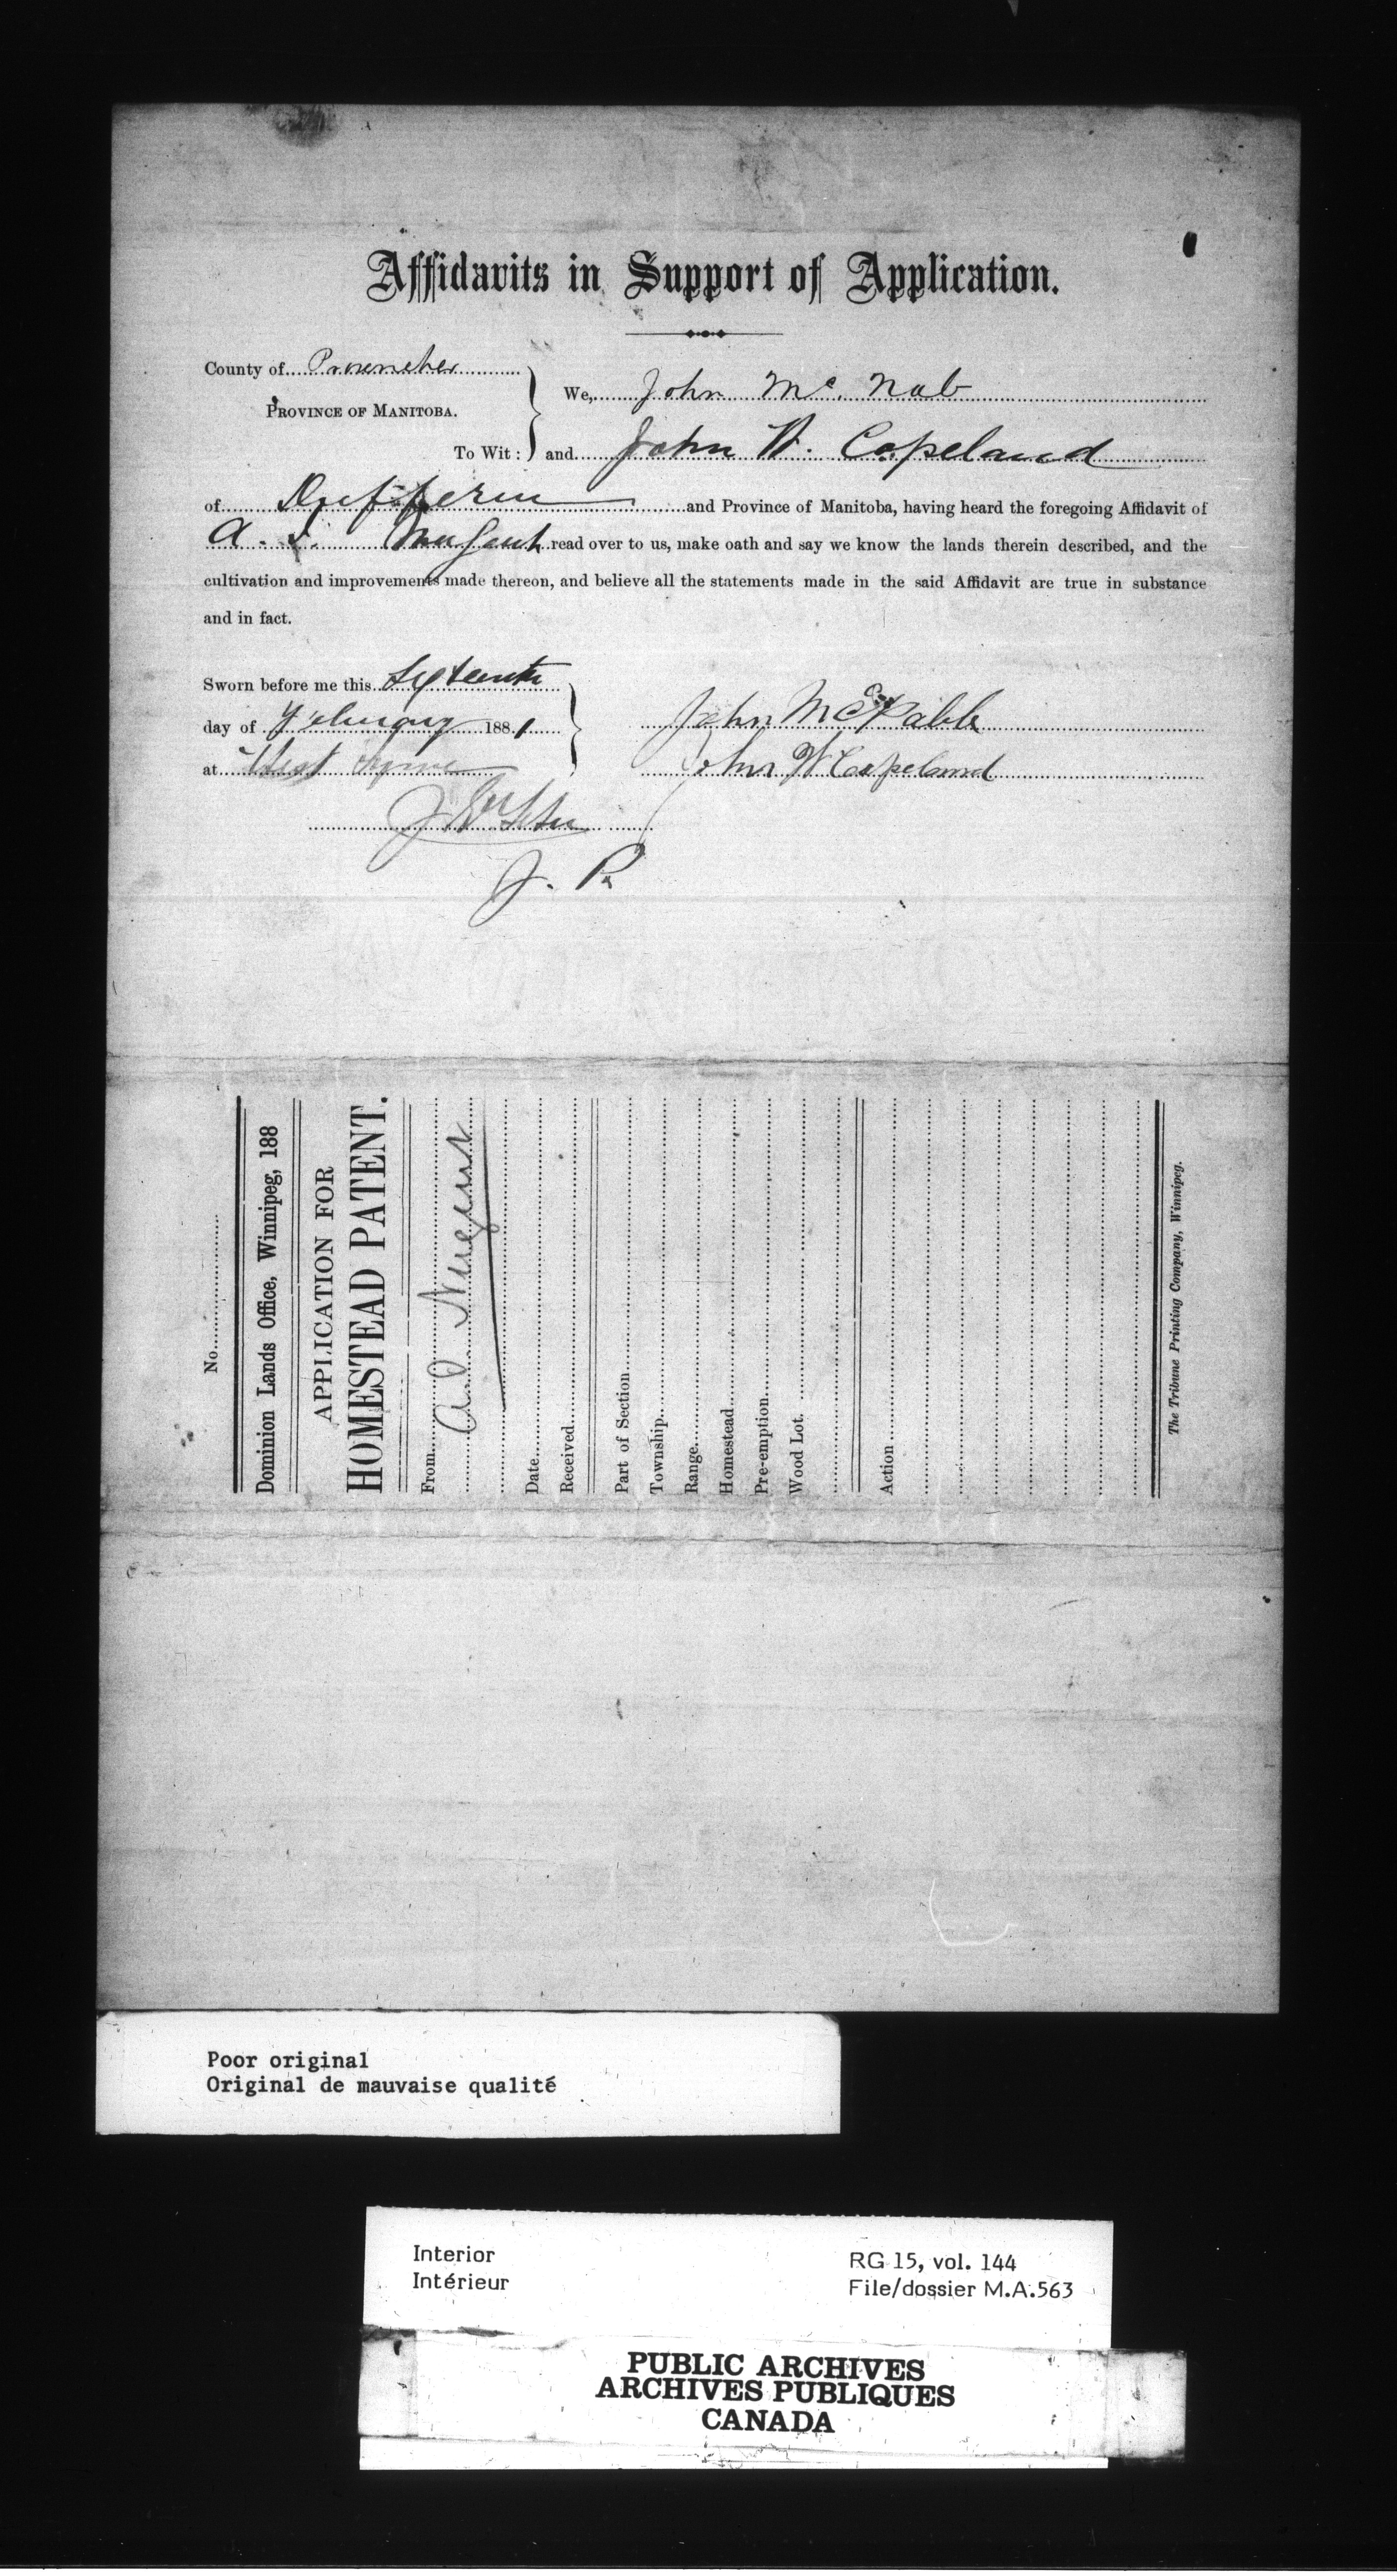 Affidavits in Support of Application.
County of Provencher
PROVINCE OF MANITOBA.
To Wit:
We, John Mc. Nab
and John W. Copeland
of Dufferin and Province of Manitoba, having heard the foregoing Affidavit of
A. Nugent read over to us, make oath and say we know the lands therein described, and the
cultivation and improvements made thereon, and believe all the statements made in the said Affidavit are true in substance
and in fact.
Sworn before me this Sixteenth
day of February 1881
at West Lynne
John McNabb
John W Copeland
J. P.
No.
Dominion Lands Office, Winnipeg, 188
APPLICATION FOR
HOMESTEAD PATENT.
From
Nugent
Date
Received
Part of Section
Township
Range
Homestead
Pre-emption
Wood Lot.
Action
The Tribune Printing Company, Winnipeg.
Poor original
Original de mauvaise qualité
Interior
Intérieur
RG 15, vol. 144
File/dossier M.A.563
PUBLIC ARCHIVES
ARCHIVES PUBLIQUES
CANADA